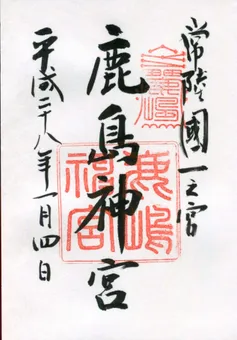 常陸國一之宮
鹿島神宮
平成二十八年一月四日
鹿嶋神宮